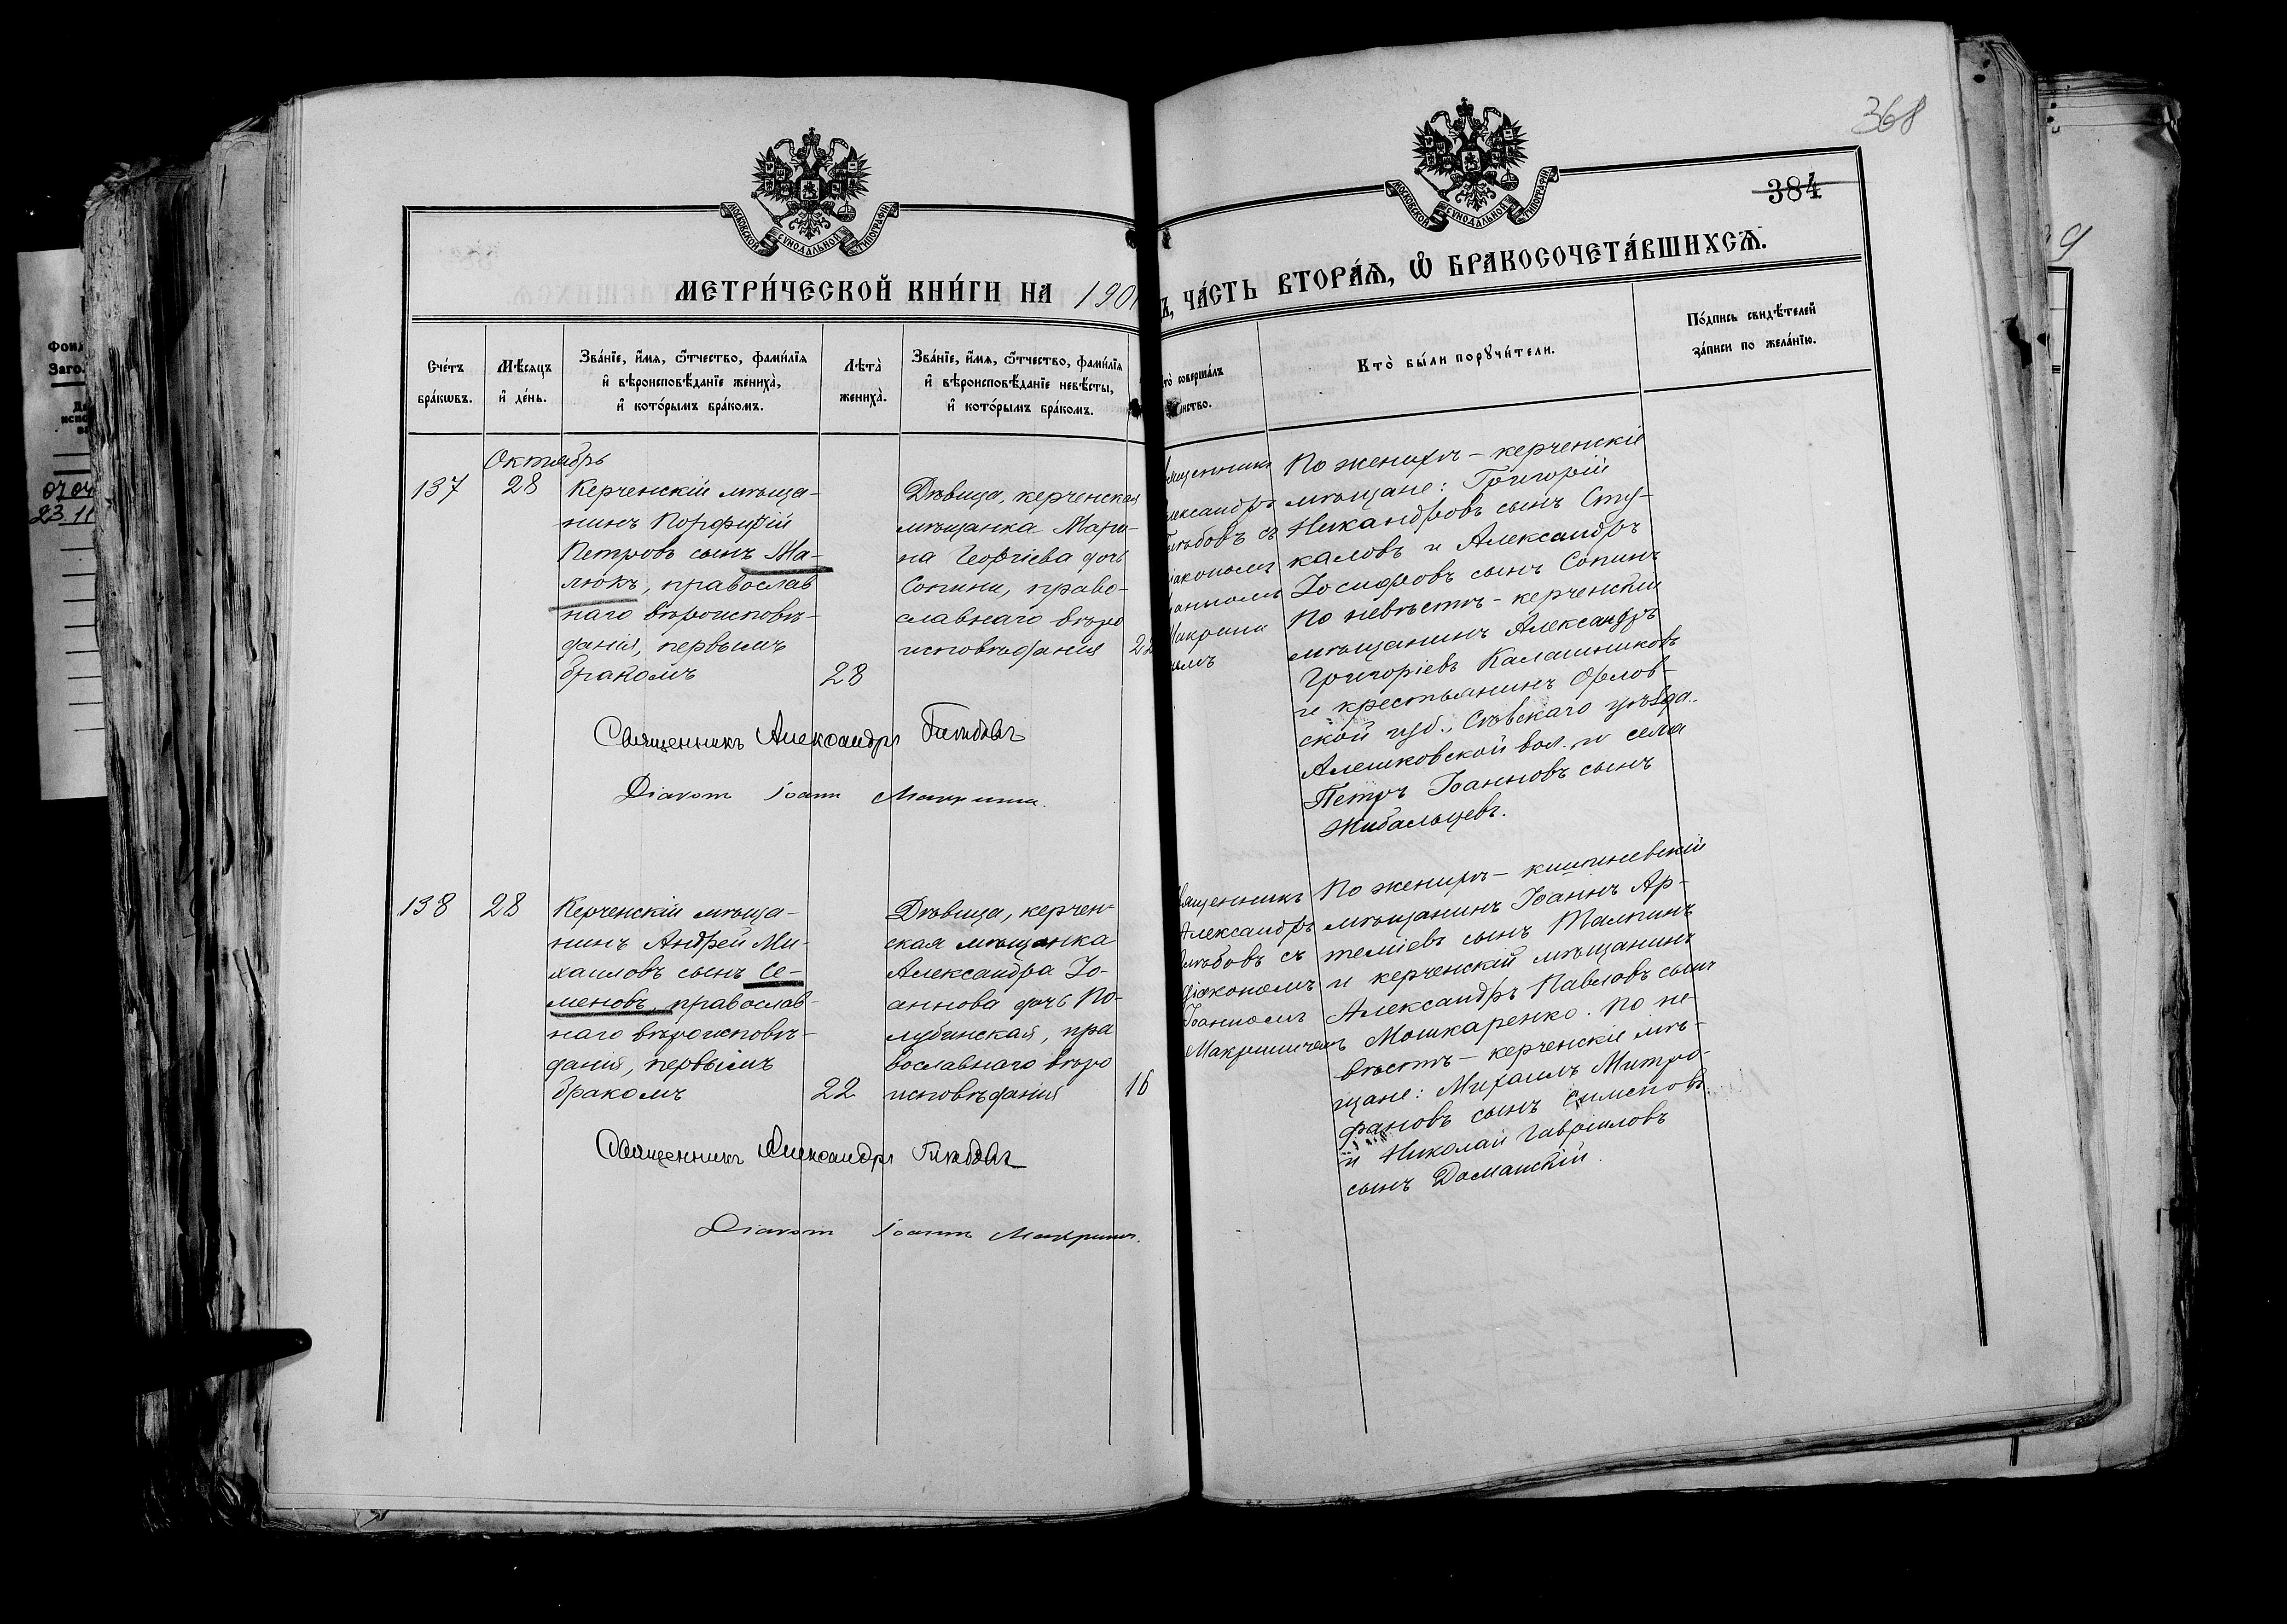 368
384
МОСКОВСКОЙ СУНОДАЛЬНОЙ ТИПОГРАФІИ
МОСКОВСКОЙ СУНОДАЛЬНОЙ ТИПОГРАФІИ
МЕТРИ́ЧЕСКОЙ КНИ́ГИ НА 190
ЧА́СТЬ ВТОРА́Ѧ, Ѡ҆ БРАКОСОЧЕТА́ВШИХСѦ.
Сче́тъ бра́кѡвъ.
Мѣ́сѧцъ и҆ де́нь.
Зва́нїе, и҆́мѧ, ѻ҆́тчество, фами́лїѧ и҆ вѣроисповѣ́данїе жениха̀, и҆ кото́рымъ бра́комъ.
Лѣта̀ жениха̀.
Зва́нїе, и҆́мѧ, ѻ҆́тчество, фами́лїѧ и҆ вѣроисповѣ́данїе невѣ́сты, и҆ кото́рымъ бра́комъ.
то̀ соверша́лъ
инство.
Кто̀ бы́ли порꙋчи́тели.
По́дпись свидѣ́телей за́писи по жела́нїю.
Октябрь
137
28
Керченскій мѣща-
нинъ Порфирій
Петровъ сынъ Ма-
люкъ, православ
наго вѣроисповѣ-
данія, первымъ
бракомъ
28
Дѣвица, керченская
мѣщанка Мари-
на Георгіева дочь
Сопина, право-
славнаго вѣро
исповѣданія
22
ященникъ
лександръ
лѣбовъ съ
іакономъ
оанномъ
Макрини
емъ
По женихѣ – керченскіе
мѣщане: Григорій
Никандровъ сынъ Сту-
каловъ и Александръ
Іосифовъ сынъ Сопинъ
По невѣстѣ – керченскій
мѣщанинъ Александръ
Григоріевъ Калашниковъ
и крестьянинъ Орлов-
ской губ., Сѣвскаго уѣзда.
Алешковской вол. и села
Петръ Іоанновъ сынъ
Жибальцевъ.
Священникъ Александръ Глѣбовъ
Діаконъ Іоаннъ
138
28
Керченскій мѣща-
нинъ Андрей Ми-
хаиловъ сынъ Се-
меновъ, православ-
наго вѣроисповѣ-
данія, первымъ
бракомъ
22
Дѣвица, керчен-
ская мѣщанка
Александра Іо-
аннова дочь По-
лубинская, пра
вославнаго вѣро
исповѣданія
16
вященникъ
Александръ
лѣбовъ съ
діакономъ
Іоанномъ
Макриничемъ
По женихѣ – кишиневскій
мѣщанинъ Іоаннъ Ар-
теміевъ сынъ Талпинъ
и керченскій мѣщанинъ
Александръ Павловъ сынъ
Мошкаренко. По не-
вѣстѣ – керченскіе мѣ-
щане: Михаилъ Митро-
фановъ сынъ Сименовъ
и Николай Гавриловъ
сынъ Доманскій.
Священникъ Александръ Глѣбовъ
Діаконъ Іоаннъ